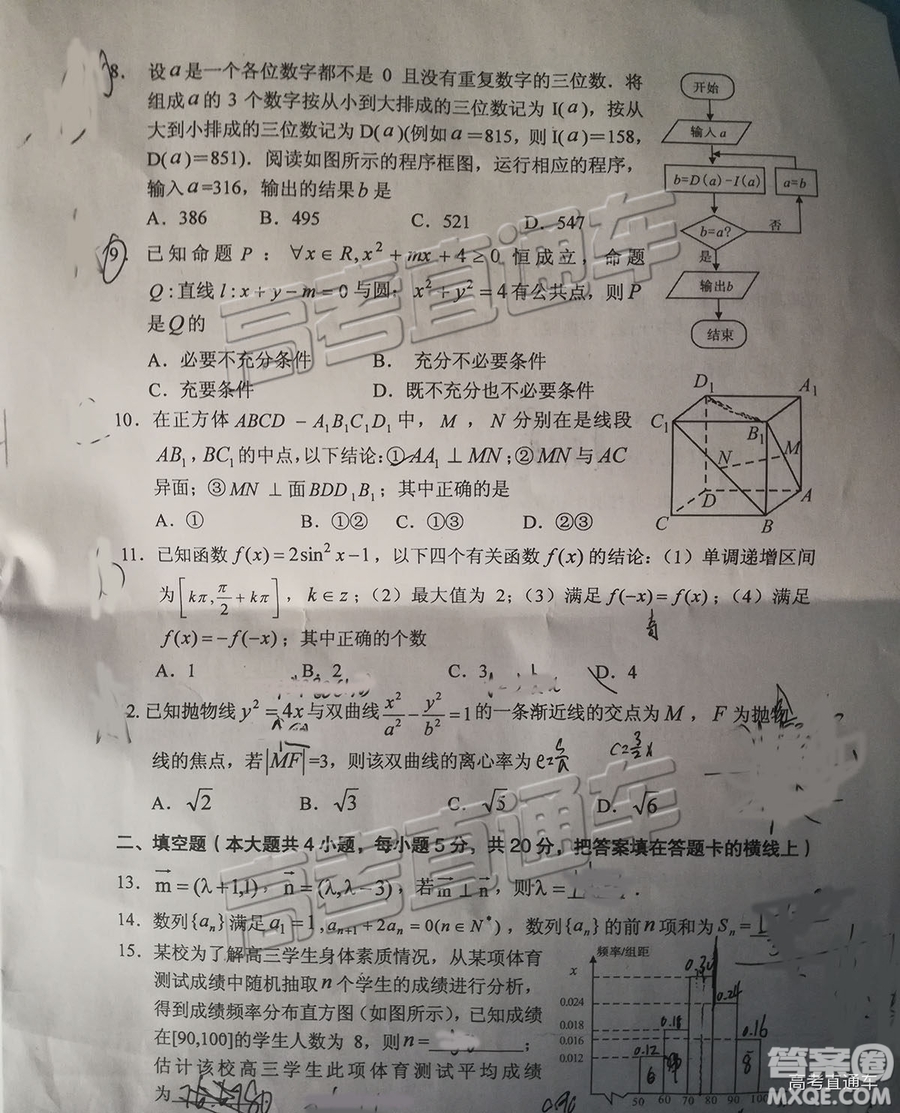 8. 设a是一个各位数字都不是 0 且没有重复数字的三位数．将
组成a的 3 个数字按从小到大排成的三位数记为 I(a)，按从
大到小排成的三位数记为 D(a)(例如a=815，则I(a)=158，
D(a)=851)．阅读如图所示的程序框图，运行相应的程序，
输入a=316，输出的结果b是
A．386 B．495 C．521 D．547
开始
输入a
b=D(a)-I(a)
a=b
b=a?
否
是
输出b
结束
9. 已知命题 P ：∀x∈R,x²+mx+4≥0 恒成立，命题
Q:直线l:x+y-m=0与圆，x²+y²=4有公共点，则P
是Q的
A．必要不充分条件 B． 充分不必要条件
C．充要条件 D．既不充分也不必要条件
10．在正方体ABCD-A₁B₁C₁D₁中，M，N分别在是线段
AB₁，BC₁的中点，以下结论:①AA₁⊥MN;②MN与AC
异面；③MN⊥面BDD₁B₁；其中正确的是
A．① B．①② C．①③ D．②③
D₁
A₁
C₁
B₁
M
N
D
A
C
B
11．已知函数f(x)=2sin²x-1，以下四个有关函数f(x)的结论：（1）单调递增区间
为[kπ,π/2+kπ]，k∈z；（2）最大值为 2；（3）满足f(-x)=f(x)；（4）满足
f(x)=-f(-x)；其中正确的个数
A．1 B．2 C．3 D．4
2.已知抛物线y²=4x与双曲线x²/a²-y²/b²=1的一条渐近线的交点为M，F为抛物
线的焦点，若|MF|=3，则该双曲线的离心率为
A．√2 B．√3 C．√5 D．√6
二、填空题（本大题共4小题，每小题5分，共20分，把答案填在答题卡的横线上）
13．m=(λ+1,1)，n=(λ,λ-3)，若m⊥n，则λ= .
14．数列{aₙ}满足a₁=1,aₙ₊₁+2aₙ=0(n∈N*)，数列{aₙ}的前n项和为Sₙ=
15．某校为了解高三学生身体素质情况，从某项体育
测试成绩中随机抽取n个学生的成绩进行分析，
得到成绩频率分布直方图（如图所示），已知成绩
在[90,100]的学生人数为 8，则n= ；
估计该校高三学生此项体育测试平均成绩
为
频率/组距
x
0.024
0.018
0.016
0.012
50 60 70 80 90 100
0.12
0.18
0.30
0.24
0.16
6
8
高考直通车
高考直通车
高考直通车
答案圈
高考直通车
MXQE.COM